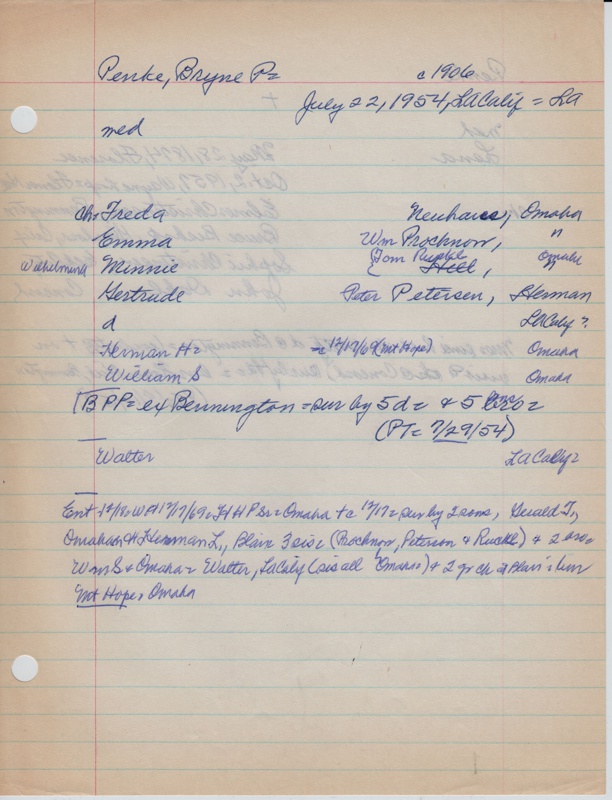 Penke, Bryne P= c1906
July 22, 1954, LA Calif = LA
med
ch. Freda Neuhaus, Omaha
Emma Wm Procknow, "
Wilhelmina Minnie Tom Ruckle, Omaha
Gertrude Peter Petersen, Herman
d LA Calif ?
Herman H= 12/17/69 (Mt Hope) Omaha
William S Omaha
BPP= ex Bennington = sur by 5 d= & 5 bro=
(PT= 7/29/54)
Walter LA Calif=
Ent 12/18 Wd 12/17/69 = HHP Sr = Omaha + = 12/17 = sur by 2 sons, Gerald T,
Omaha & Herman L, Blair 3 sis = (Procknow, Peterson & Ruckle) & 2 bro=
Wm S & Omaha = Walter, LA Calif (sis all Omaha=) & 2 gr ch
Mt Hope, Omaha